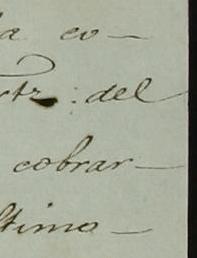 la co-
rtz: del
cobrar-
ltimo-